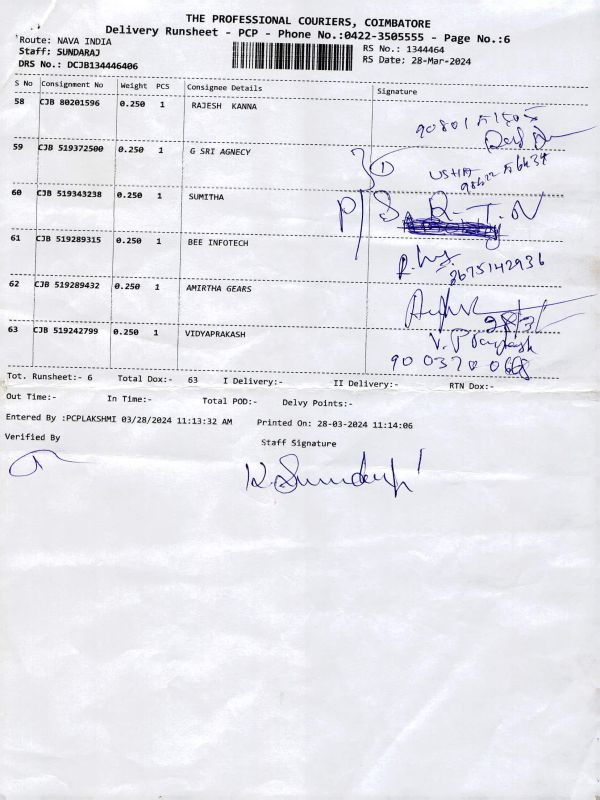 THE PROFESSIONAL COURIERS, COIMBATORE
Delivery Runsheet - PCP - Phone No.:0422-3505555 - Page No.:6
Route: NAVA INDIA
Staff: SUNDARAJ
DRS No.: DCJB134446406
RS No.: 1344464
RS Date: 28-Mar-2024
S No Consignment No Weight PCS Consignee Details Signature
58 CJB 80201596 0.250 1 RAJESH KANNA
59 CJB 519372500 0.250 1 G SRI AGNECY
USHA
60 CJB 519343238 0.250 1 SUMITHA
61 CJB 519289315 0.250 1 BEE INFOTECH
62 CJB 519289432 0.250 1 AMIRTHA GEARS
28/3/
63 CJB 519242799 0.250 1 VIDYAPRAKASH
Tot. Runsheet:- 6 Total Dox:- 63 I Delivery:- II Delivery:- RTN Dox:-
Out Time:- In Time:- Total POD:- Delvy Points:-
Entered By :PCPLAKSHMI 03/28/2024 11:13:32 AM Printed On: 28-03-2024 11:14:06
Verified By Staff Signature